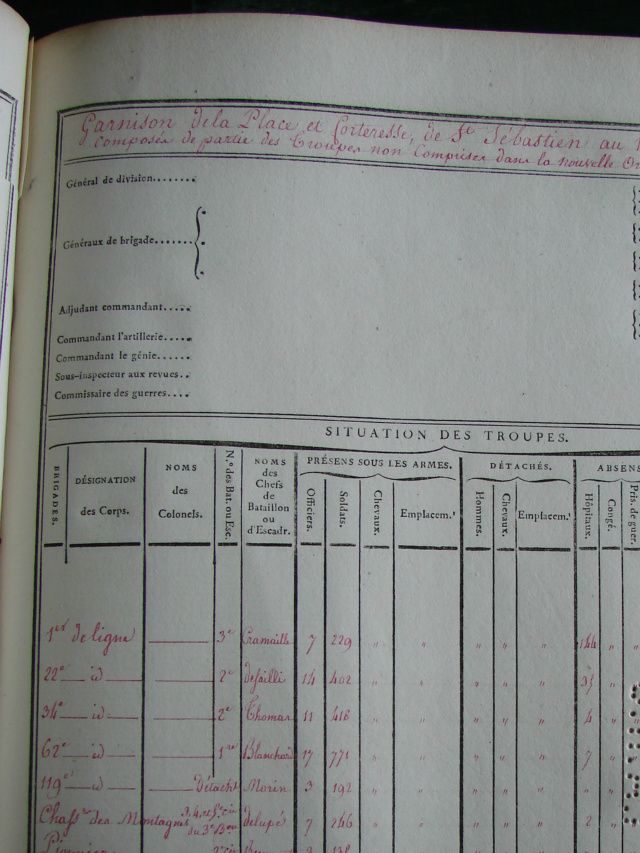 Garnison dela Place et forteresse, de St Sébastien au
composée de partie des Troupes non Comprises dans la nouvelle Or
Général de division.......
Généraux de brigade.......
Adjudant commandant.....
Commandant l'artillerie.....
Commandant le génie.....
Sous-inspecteur aux revues..
Commissaire des guerres....
SITUATION DES TROUPES.
BRIGADES. DÉSIGNATION des Corps. NOMS des Colonels. N.os des Bat. ou Esc. NOMS des Chefs de Bataillon ou d'Escadr. PRÉSENS SOUS LES ARMES. DÉTACHÉS. ABSENS
Officiers. Soldats. Chevaux. Emplacem.t Hommes. Chevaux. Emplacem.t Hôpitaux. Congé. Pris. de guer.
1er de ligne 3e Cramaille 7 229 " " " " " 144 " "
22e id 2e defailli 14 402 " " " " " 35 "
34e id 2e Thomas 11 418 " " " " " 4 "
62e id 1re Blanchard 17 771 " " " " " 7 "
119e id Détacht Morin 3 192 " " " " " " "
Chassrs des Montagnes du 3e Bon delupé 7 246 " " " " " 2 "
3 138